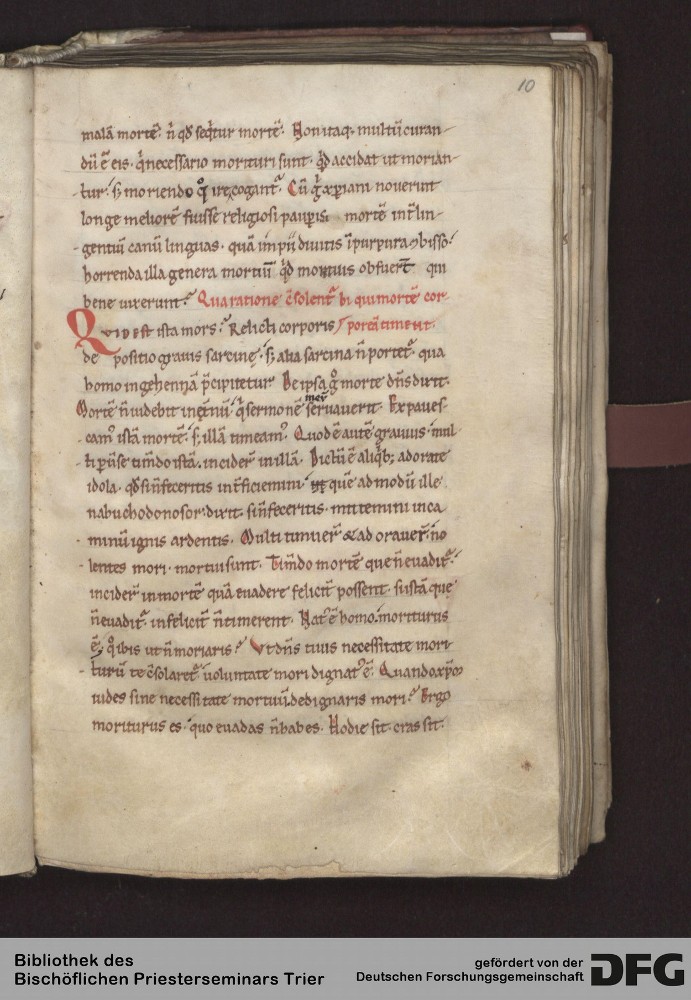 10
malā mortē? n̄ qd̄ seq̄tur mortē. Non itaq; multū curan-
dū ē eis. q̄ necessario morituri sunt. qd̄ accidat ut morian-
tur. s; moriendo quo ire cogant᷑. Cū g̊ xp̄iani noverint
longe meliorē fuisse religiosi paup̄is mortē int̄ lin-
gentiū canū linguas. quā impii divitis ī purpura ⁊ bisso?
horrenda illa genera mortiū qd̄ mortuis obfuer̄t qui
bene vixerunt? Qua ratione c̄solent᷑ hi qui mortē cor-
Quid est ista mors? Relicti corporis / porēā timent.
de positio gravis sarcinę. s; alia sarcina n̄ portet᷑. qua
homo in gehennā p̄cipitetur De ipsa g̊ morte dn̄s dixit.
Mortē n̄ videbit in ęt̄nū. q̄ sermonē meū servaverit. Expaves-
cam᷒ istā mortē. s; illā timeam᷒. Quod ē autē gravius. mul-
ti p̄v̄se tim̄do istā. incider̄ in illā. Dictū ē aliqb; adorate
idola. qd̄ si n̄ feceritis int̄ficiemini. ut quē ad modū ille
nabuchodonosor dixit. si n̄ feceritis. mittemini in ca-
minū ignis ardentis. Multi timuer̄ & adoraver̄. no-
lentes mori. mortui sunt. Tim̄do mortē que n̄ evadit᷑.
incider̄ in mortē quā evadere felicit̄ possent. si istā que
n̄ evadit᷑. infelicit̄ n̄ timerent. Nat᷒ ē homo. moriturus
ē. q̊ ibis ut n̄ moriaris? Ut dn̄s tuus necessitate mori-
turū te c̄solaret᷑. voluntate mori dignat᷒ ē. Quando xp̄m
vides sine necessitate mortuū. dedignaris mori? Ergo
moriturus es. quo evadas n̄ habes. Hodie sit. cras sit.
Bibliothek des
Bischöflichen Priesterseminars Trier
gefördert von der
Deutschen Forschungsgemeinschaft
DFG